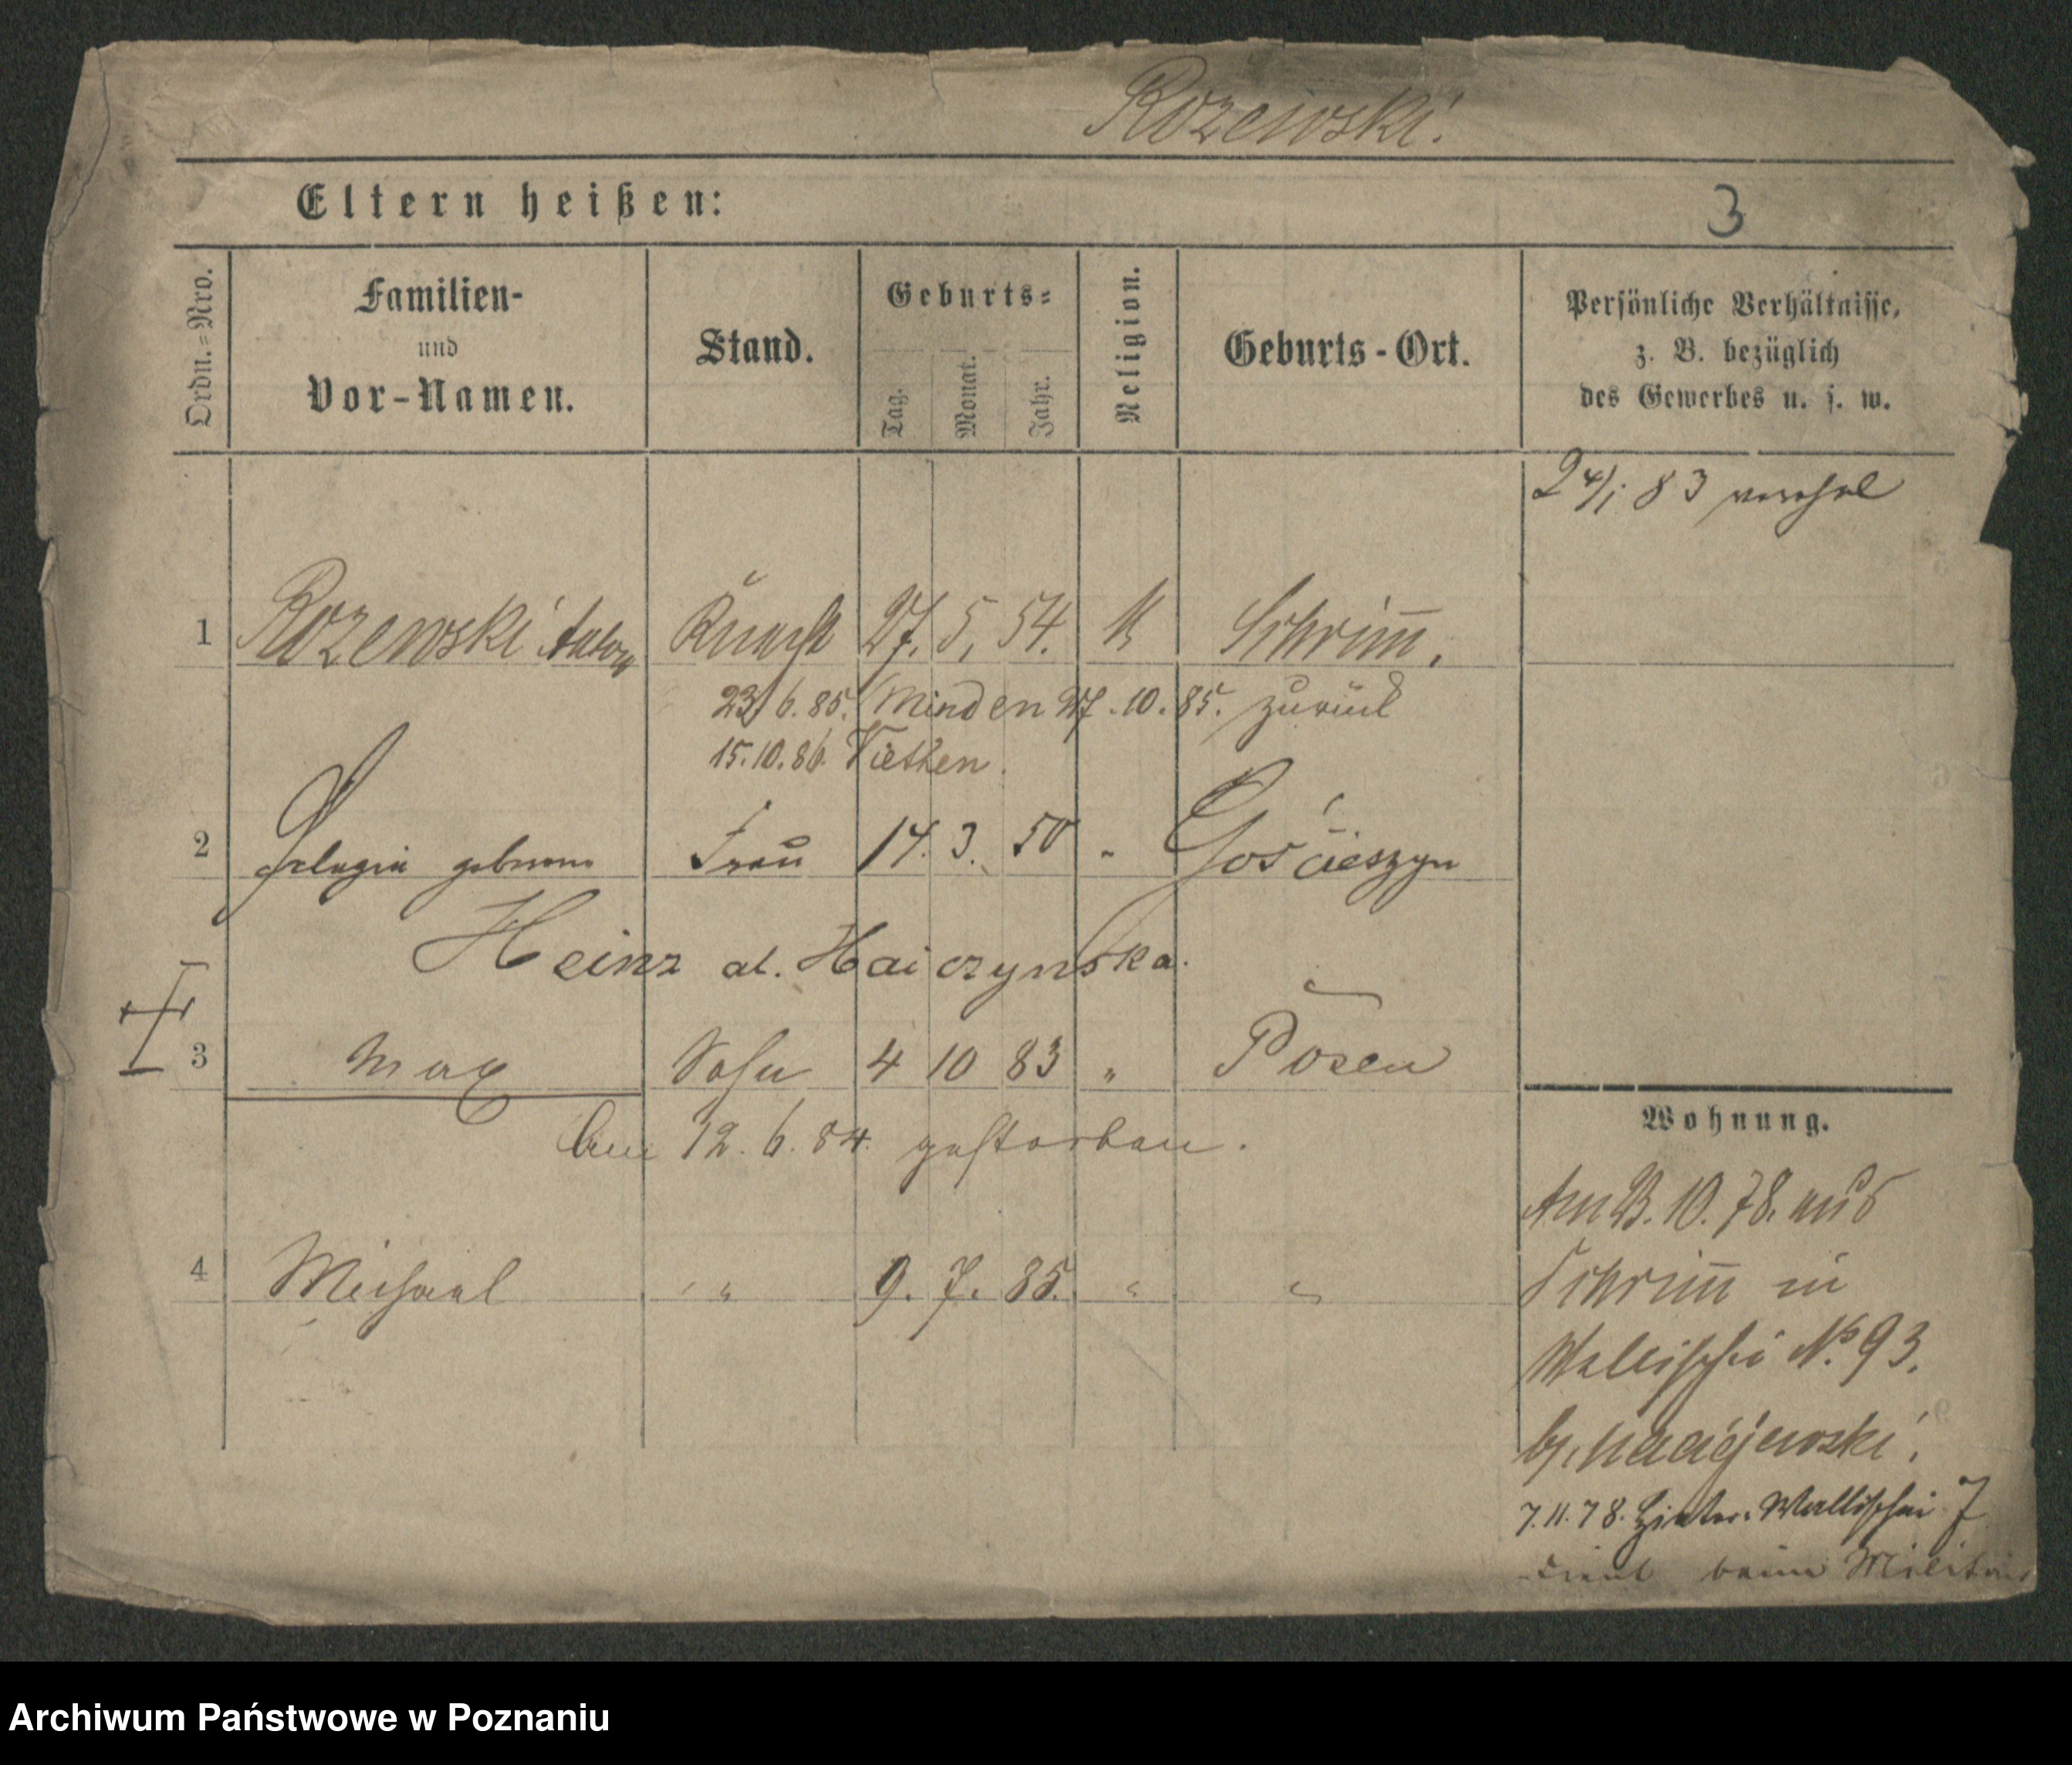 Rozewski.
Eltern heißen:
3
Ordn.=Nro.
Familien-
und
Vor-Namen.
Stand.
Geburts=
Tag.
Monat.
Jahr.
Religion.
Geburts-Ort.
Persönliche Verhältnisse,
z. B. bezüglich
des Gewerbes u. s. w.
24/1 83
1 Rozewski Anton Knecht 27. 5. 54. K Schrimm.
23/6.85. Minden 27.10.85. zurück
15.10.86. Viethen.
2 Pelagia geborene Frau 14. 3. 50 " Gościeszyn
Heinz al. Haiczynska.
3 Max Sohn 4 10 83 " Posen
Am 12.6.84. gestorben.
4 Michael " 9. 7. 85. " "
Wohnung.
Am 23.10.78. aus
Schrimm in
Wallischei No. 93.
b/. Maciejewski.
7.11.78. Hinter-Wallischei 7
dient beim Militair
Archiwum Państwowe w Poznaniu